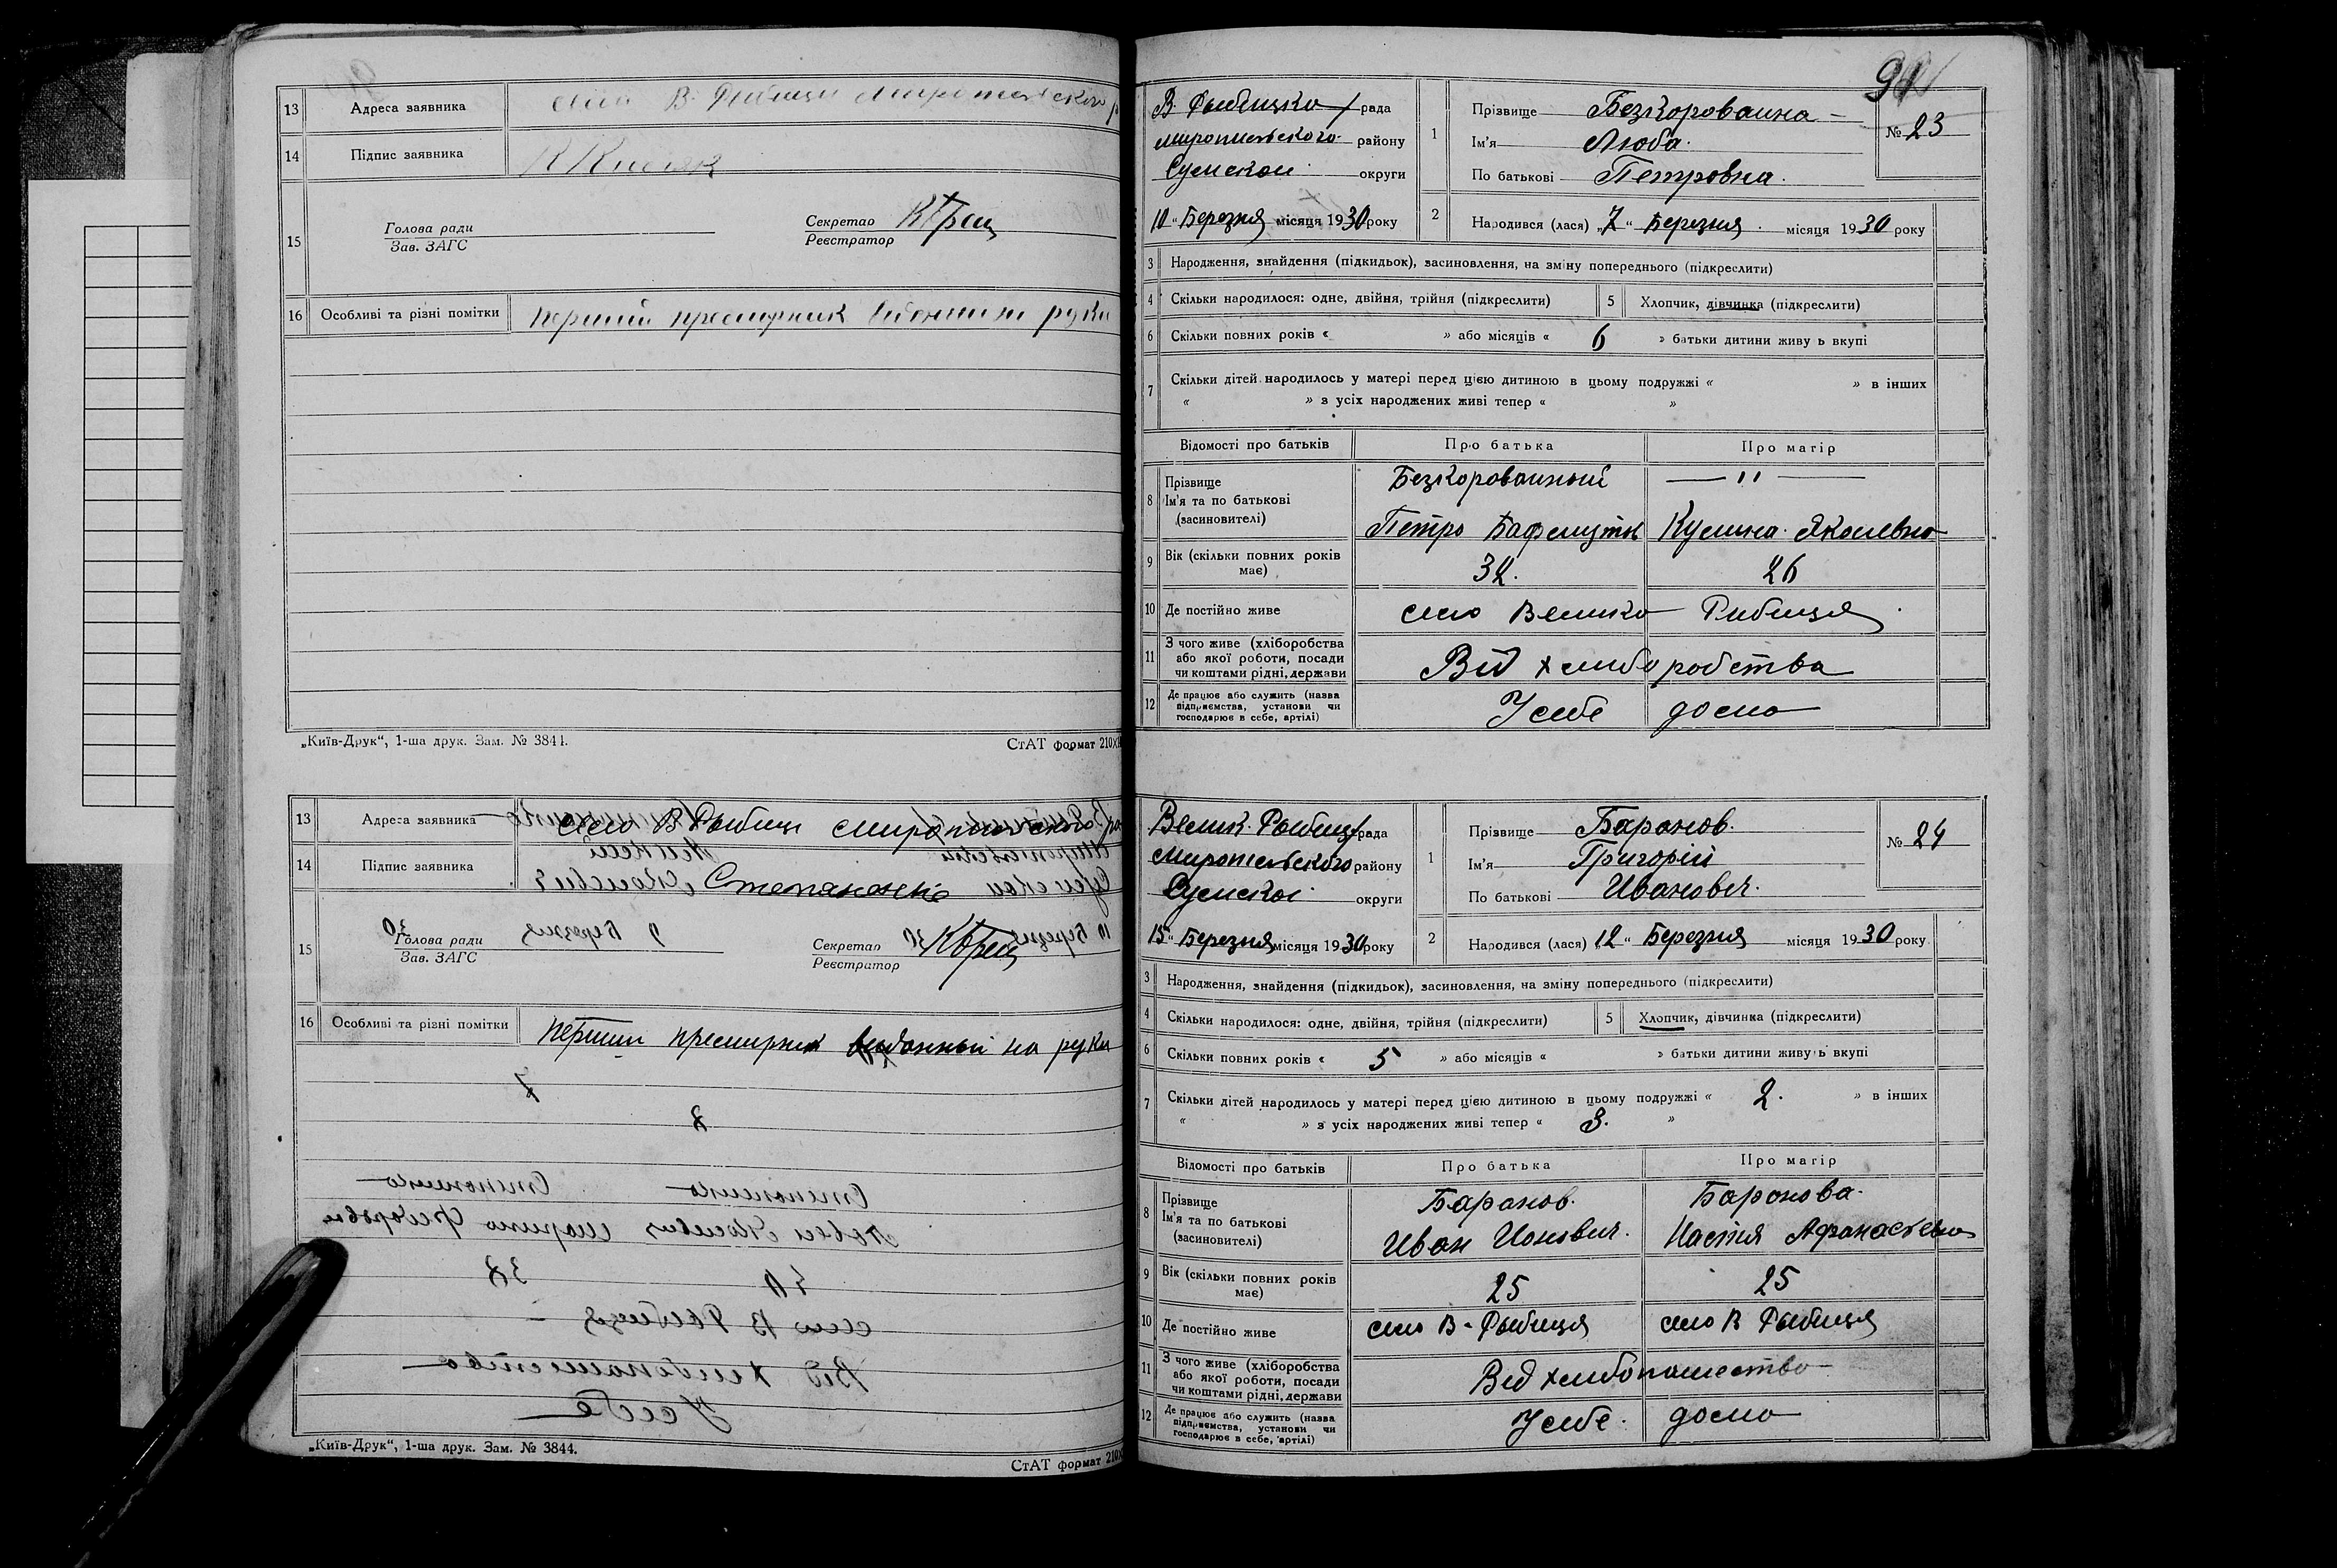 13 Адреса заявника село В. Рыбици Миропольского р
14 Підпис заявника К Кисляк
15 Голова ради
Зав. ЗАГС
Секретар
Реєстратор
16 Особливі та різні помітки Перший на руки
„Київ-Друк“, 1-ша друк. Зам. № 3844.
СтАТ формат 210×
13 Адреса заявника село В Рыбици Миропольского ра
14 Підпис заявника Степаненко
15 Голова ради
Зав. ЗАГС
Секретар
Реєстратор
16 Особливі та різні помітки Перший на руки
„Київ-Друк“, 1-ша друк. Зам. № 3844.
СтАТ формат 210×
91
В Рыбицка рада
Миропільського району
Сумской округи
10 “ Березня місяця 1930 року
1 Прізвище Безкороваина
Ім’я Люба
По батькові Петровна
№ 23
2 Народився (лася) „ 7 “ Березня місяця 1930 року
3 Народження, знайдення (підкидьок), засиновлення, на зміну попереднього (підкреслити)
4 Скільки народилося: одне, двійня, трійня (підкреслити)
5 Хлопчик, дівчинка (підкреслити)
6 Скільки повних років « » або місяців « 6 » батьки дитини живуть вкупі
7 Скільки дітей народилось у матері перед цією дитиною в цьому подружжі « » в інших
« » з усіх народжених живі тепер « »
Відомості про батьків Про батька Про матір
8 Прізвище Безкорованный — " —
Ім’я та по батькові
(засиновителі) Петро Кулина Яколевна
9 Вік (скільки повних років має) 32. 26
10 Де постійно живе село Велика Рибиця
11 З чого живе (хліборобства
або якої роботи, посади
чи коштами рідні, держави Від хлиборобства
12 Де працює або служить (назва
підприємства, установи чи
господарює в себе, артілі) У себе дома
Велик. Рыбиц рада
Миропільського району
Сумскої округи
15 “ Березня місяця 1930 року
1 Прізвище Баранов.
Ім’я Григорій
По батькові Иванович.
№ 24
2 Народився (лася) 12 “ Березня місяця 1930 року
3 Народження, знайдення (підкидьок), засиновлення, на зміну попереднього (підкреслити)
4 Скільки народилося: одне, двійня, трійня (підкреслити)
5 Хлопчик, дівчинка (підкреслити)
6 Скільки повних років « 5 » або місяців « » батьки дитини живуть вкупі
7 Скільки дітей народилось у матері перед цією дитиною в цьому подружжі « 2. » в інших
« » з усіх народжених живі тепер « 3. »
Відомості про батьків Про батька Про матір
8 Прізвище Баранов. Баронова
Ім’я та по батькові
(засиновителі) Иван Ионович. Настя Афанасьевна
9 Вік (скільки повних років має) 25 25
10 Де постійно живе село В-Рыбиця село В Рыбиця
11 З чого живе (хліборобства
або якої роботи, посади
чи коштами рідні, держави Від хлибопашество
12 Де працює або служить (назва
підприємства, установи чи
господарює в себе, артілі) У себе. дома